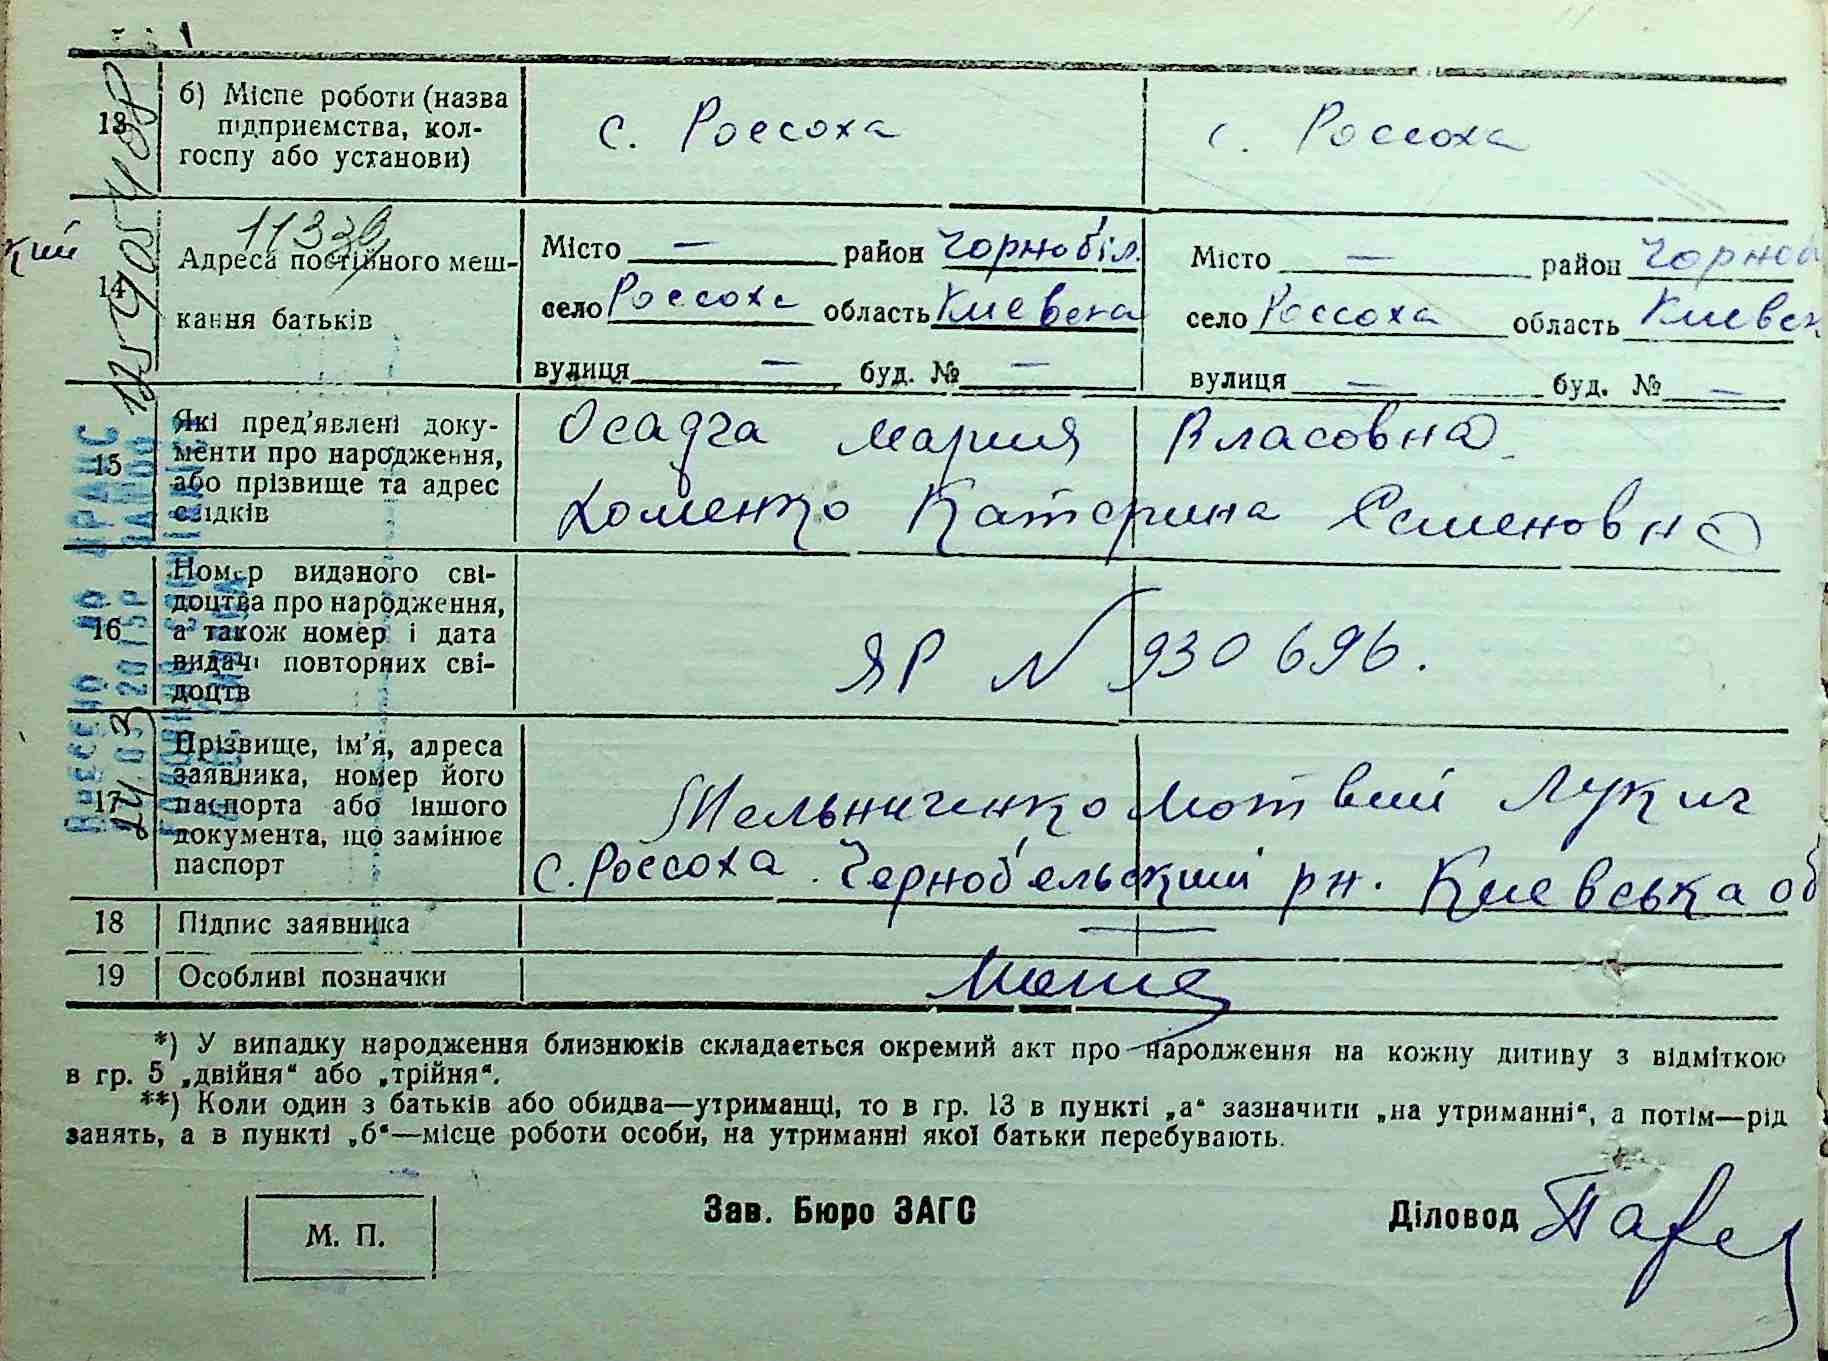 13
б) Міспе роботи (назва
підприємства, кол-
госпу або установи)
с. Россоха
с. Россоха
14
Адреса постійного меш-
кання батьків
кий
Місто — район Чорнобіл.
село Россоха область Киевска
вулиця — буд. № —
Місто — район Чорноб
село Россоха область Киевск
вулиця — буд. № —
15
Які пред'явлені доку-
менти про народження,
або прізвище та адрес
свідків
Осадча Мария Власовна
Хоменко Катерина Семеновна
16
Номер виданого сві-
доцтва про народження,
а також номер і дата
видачі повторних сві-
доцтв
ЯР N 930696.
17
Прізвище, ім'я, адреса
заявника, номер його
паспорта або іншого
документа, що замінює
паспорт
Мельниченко Мотвий Лукич
с. Россоха. Чернобельский рн. Киевська об
18
Підпис заявника
19
Особливі позначки
*) У випадку народження близнюків складається окремий акт про народження на кожну дитину з відміткою
в гр. 5 „двійня“ або „трійня“.
**) Коли один з батьків або обидва—утриманці, то в гр. 13 в пункті „а“ зазначити „на утриманні“, а потім—рід
занять, а в пункті „б“—місце роботи особи, на утриманні якої батьки перебувають.
М. П.
Зав. Бюро ЗАГС
Діловод